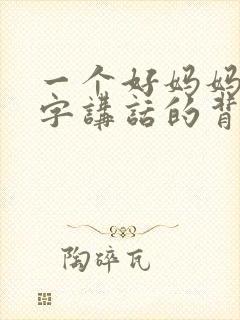 一个好妈妈
字講話的背
陶碎瓦